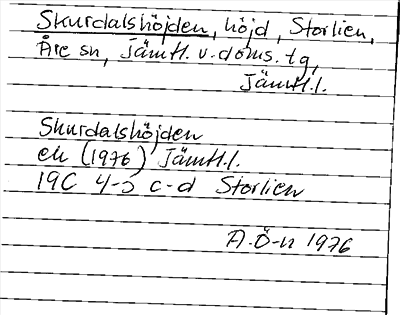 Skurdalshöjden, höjd, Storlien,
Åre sn, Jämtl. v. doms. tg,
Jämtl. l.
Skurdalshöjden
ek (1976) Jämtl. l.
19C 4-5 c-d Storlien
A. Ö-n 1976